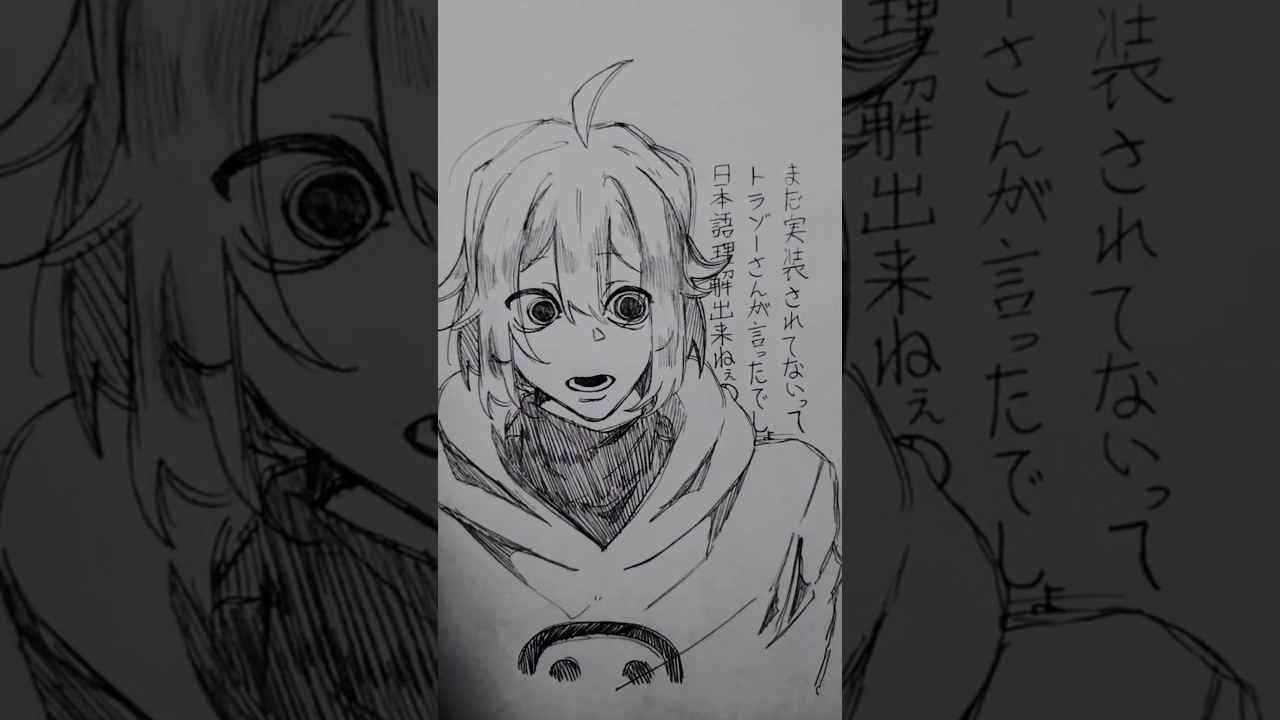 まだ実装されてないって
トラゾーさんが言ったでしょ
日本語理解出来ねぇの